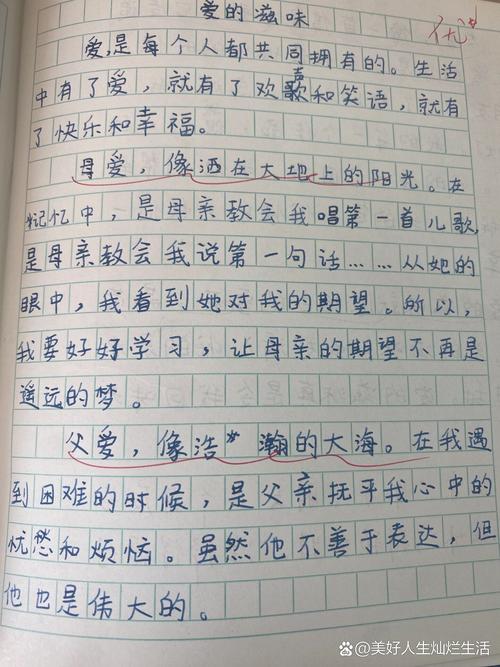 爱的滋味
优
爱，是每个人都共同拥有的。生活
中有了爱，就有了欢歌声和笑语，就有
了快乐和幸福。
母爱，像洒在大地上的阳光。在
记忆中，是母亲教会我唱第一首儿歌，
是母亲教会我说第一句话……从她的
眼中，我看到她对我的期望。所以，
我要好好学习，让母亲的期望不再是
遥远的梦。
父爱，像浩瀚的大海。在我遇
到困难的时候，是父亲抚平我心中的
忧愁和烦恼。虽然他不善于表达，但
他也是伟大的。
美好人生灿烂生活